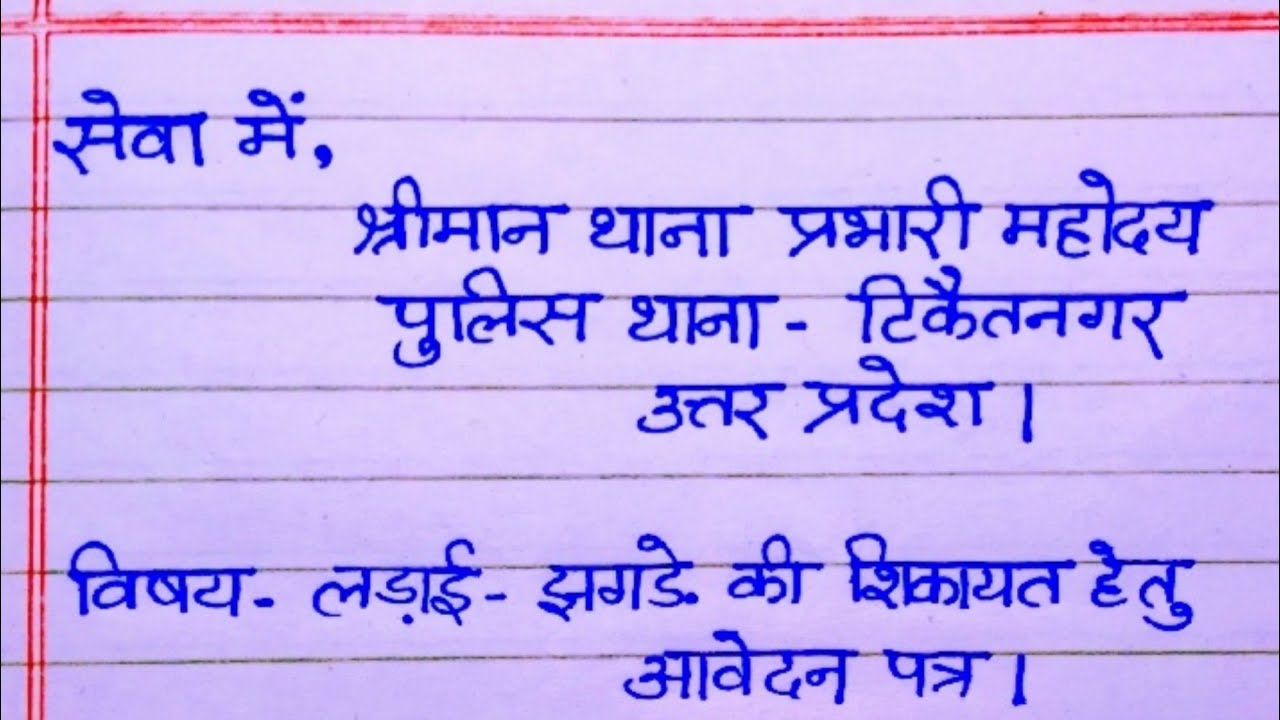 सेवा में,
श्रीमान थाना प्रभारी महोदय
पुलिस थाना - टिकैतनगर
उत्तर प्रदेश।
विषय - लड़ाई - झगडे. की शिकायत हेतु
आवेदन पत्र।